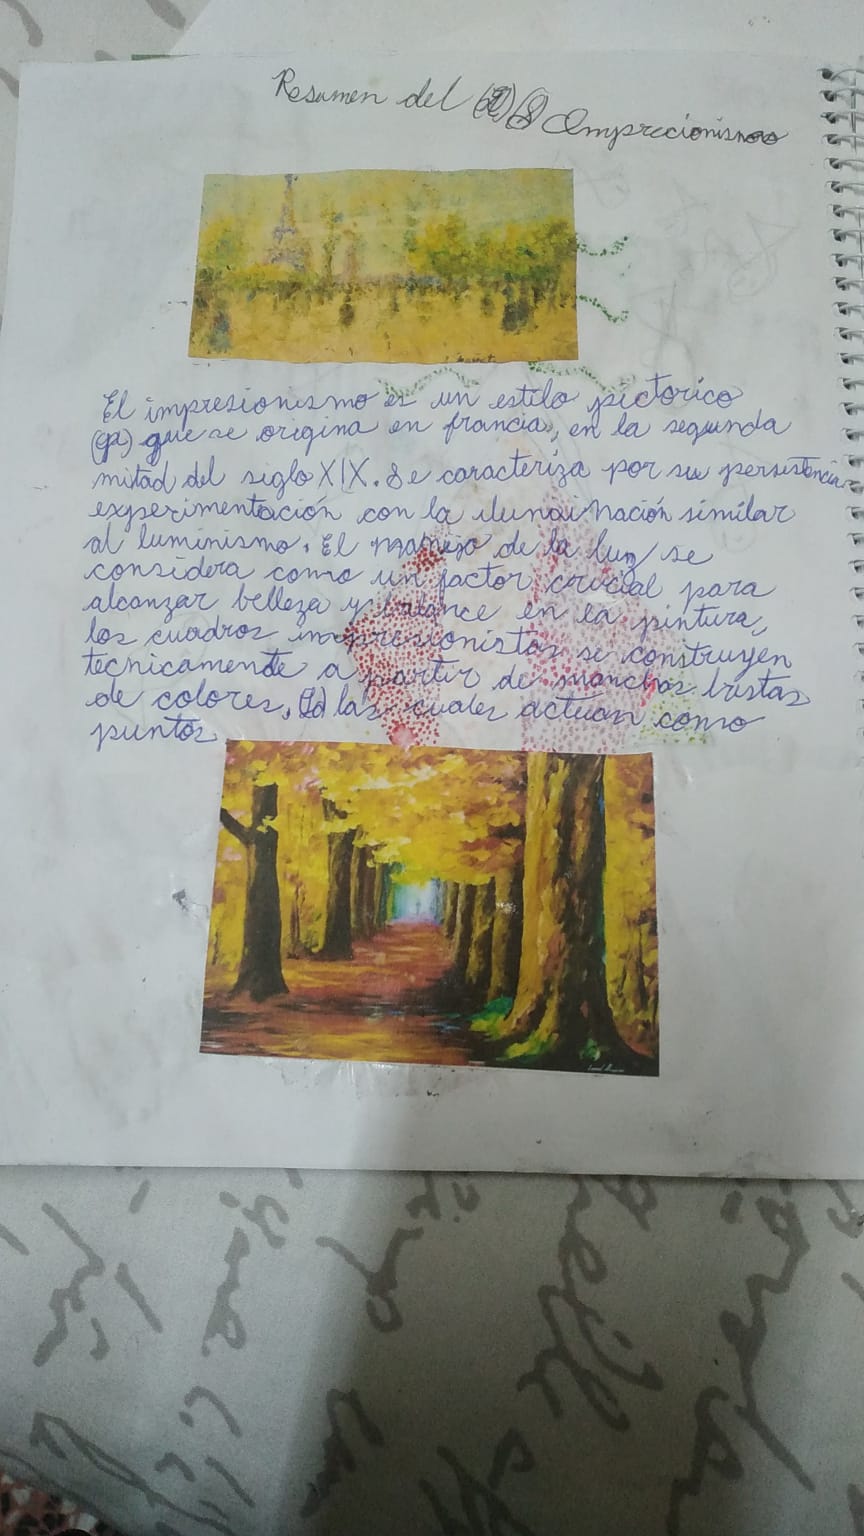 Resumen del Imprecionismo
El impresionismo es un estilo pictorico
que se origina en francia, en la segunda
mitad del siglo XIX. Se caracteriza por su persistencia
experimentación con la ilunainación similar
al luminismo. El manejo de la luz se
considera como un factor crucial para
alcanzar belleza y balance en la pintura,
los cuadros impresionistas se construyen
tecnicamente a partir de manchas bastas
de colores, las cuales actúan como
puntos